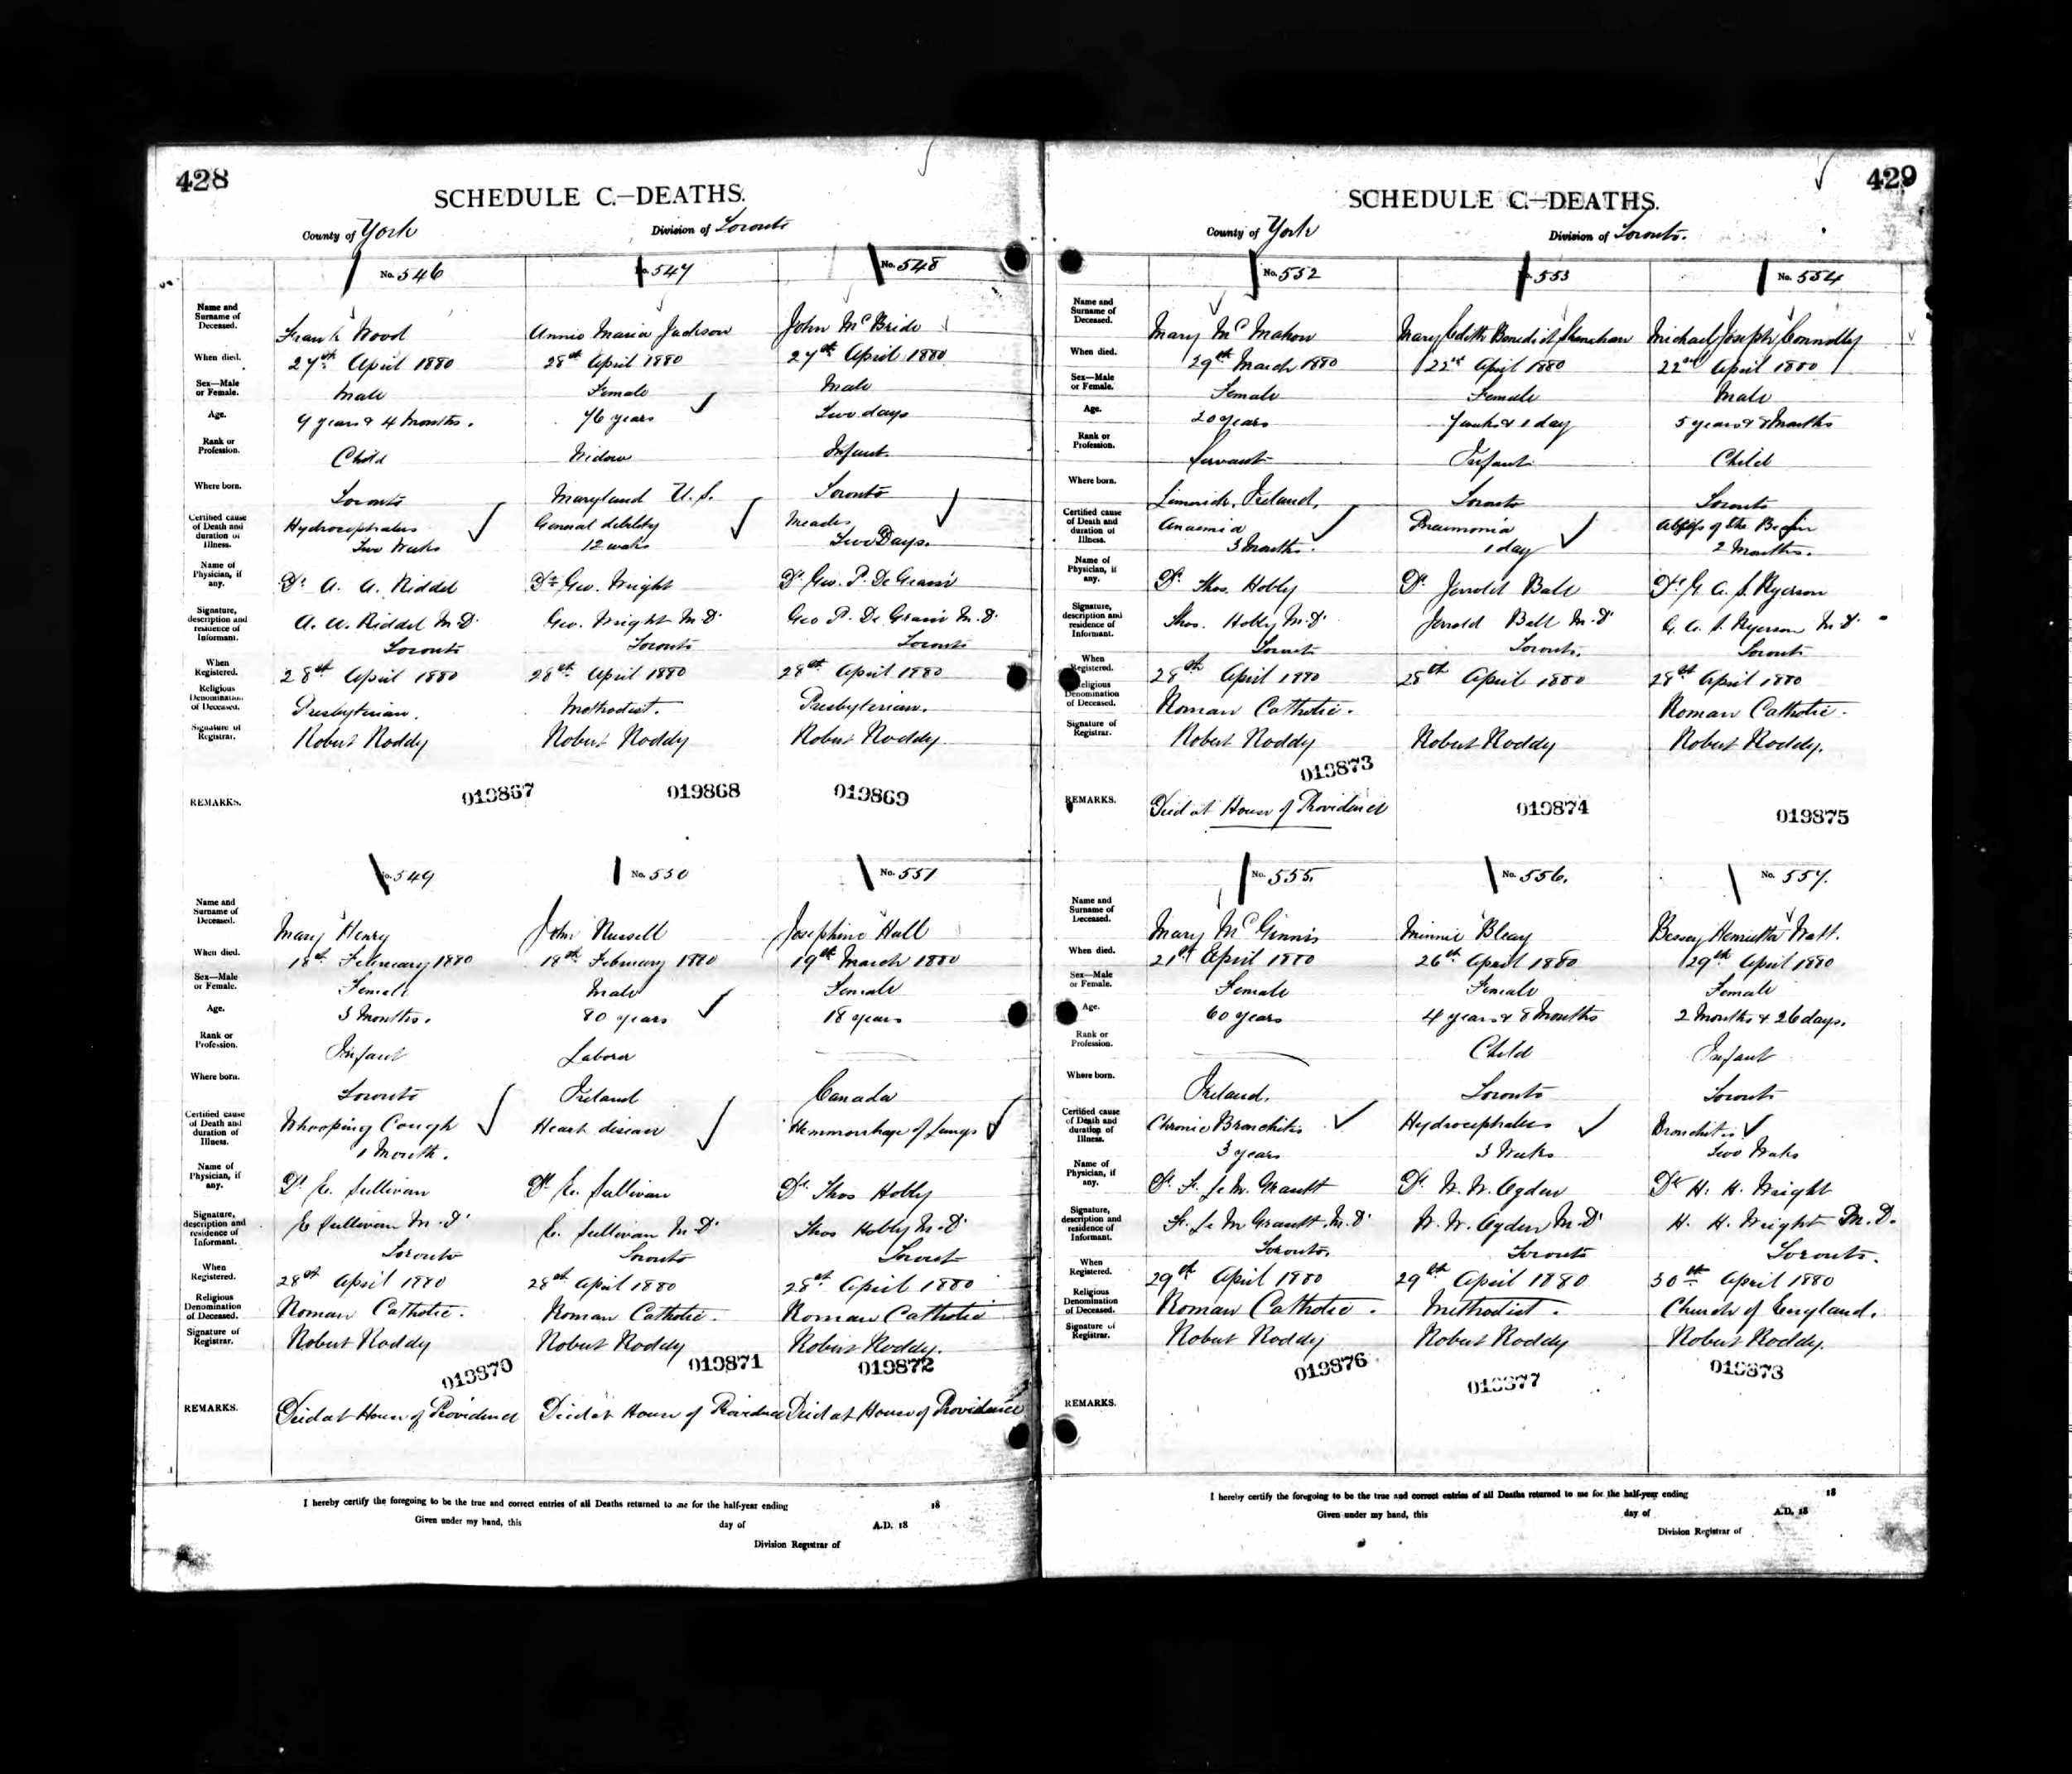 428
SCHEDULE C.—DEATHS.
County of York Division of Toronto
No. 546 No. 547 No. 548
Name and Surname of Deceased. Frank Wood Annie Maria Jackson John McBride
When died. 27th April 1880 28th April 1880 27th April 1880
Sex—Male or Female. Male Female Male
Age. 9 years & 4 Months. 76 years Two days
Rank or Profession. Child Widow Infant.
Where born. Toronto Maryland U.S. Toronto
Certified cause of Death and duration of Illness. Hydrocephalus Two Weeks General debility 12 weeks Measles Two Days.
Name of Physician, if any. Dr A. A. Riddel Dr Geo. Wright Dr Geo. P. De Grassi
Signature, description and residence of Informant. A. A. Riddel M.D. Toronto Geo. Wright M.D. Toronto Geo P. De Grassi M.D. Toronto
When Registered. 28th April 1880 28th April 1880 28th April 1880
Religious Denomination of Deceased. Presbyterian. Methodist. Presbyterian.
Signature of Registrar. Robert Roddy Robert Roddy Robert Roddy.
REMARKS. 019867 019868 019869
No. 549 No. 550 No. 551
Name and Surname of Deceased. Mary Henry John Russell Josephine Hall
When died. 18th February 1880 18th February 1880 19th March 1880
Sex—Male or Female. Female Male Female
Age. 3 Months. 80 years 18 years
Rank or Profession. Infant Labor
Where born. Toronto Ireland Canada
Certified cause of Death and duration of Illness. Whooping Cough 1 Month. Heart disease Hemmorrhage of Lungs
Name of Physician, if any. Dr E. Sullivan Dr E. Sullivan Dr Thos Hobly
Signature, description and residence of Informant. E Sullivan M.D. Toronto E. Sullivan M.D. Toronto Thos Hobly M.D. Toronto
When Registered. 28th April 1880 28th April 1880 28th April 1880
Religious Denomination of Deceased. Roman Catholic. Roman Catholic. Roman Catholic
Signature of Registrar. Robert Roddy Robert Roddy Robert Roddy.
019870 019871 019872
REMARKS. Died at House of Providence Died at House of Providence Died at House of Providence
I hereby certify the foregoing to be the true and correct entries of all Deaths returned to me for the half-year ending 18
Given under my hand, this day of A.D. 18
Division Registrar of
429
SCHEDULE C.—DEATHS.
County of York Division of Toronto.
No. 552 No. 553 No. 554
Name and Surname of Deceased. Mary McMahon Mary Edith Benedict Shanahan Michael Joseph Connolly
When died. 29th March 1880 22nd April 1880 22nd April 1880
Sex—Male or Female. Female Female Male
Age. 20 years 7 weeks & 1 day 5 years & 8 Months
Rank or Profession. Servant Infant Child
Where born. Limerick, Ireland. Toronto Toronto
Certified cause of Death and duration of Illness. Anaemia 3 Months. Pneumonia 1 day of the 2 Months.
Name of Physician, if any. Dr Thos. Hobly Dr Jerrold Ball Dr G. A. S. Ryerson
Signature, description and residence of Informant. Thos. Hobly M.D. Toronto Jerrold Ball M.D. Toronto. G. A. S. Ryerson M.D. Toronto
When Registered. 28th April 1880 28th April 1880 28th April 1880
Religious Denomination of Deceased. Roman Catholic. Roman Catholic.
Signature of Registrar. Robert Roddy Robert Roddy Robert Roddy.
019873
REMARKS. Died at House of Providence 019874 019875
No. 555. No. 556. No. 557.
Name and Surname of Deceased. Mary McGinnis Minnie Bleay Bessey Henrietta Watt.
When died. 21st April 1880 26th April 1880 29th April 1880
Sex—Male or Female. Female Female Female
Age. 60 years 4 years & 8 Months 2 Months & 26 days.
Rank or Profession. Child Infant
Where born. Ireland. Toronto Toronto
Certified cause of Death and duration of Illness. Chronic Bronchitis 3 years Hydrocephalus 3 Weeks Bronchitis Two Weeks
Name of Physician, if any. Dr F. Le M. Grasett Dr W. W. Ogden Dr H. H. Wright
Signature, description and residence of Informant. F. Le M Grasett M.D. Toronto. W. W. Ogden M.D. Toronto H. H. Wright M.D. Toronto.
When Registered. 29th April 1880 29th April 1880 30th April 1880
Religious Denomination of Deceased. Roman Catholic. Methodist. Church of England.
Signature of Registrar. Robert Roddy Robert Roddy Robert Roddy.
019876 019877 019878
REMARKS.
I hereby certify the foregoing to be the true and correct entries of all Deaths returned to me for the half-year ending 18
Given under my hand, this day of A.D. 18
Division Registrar of